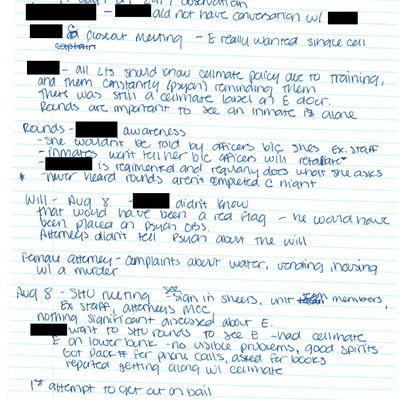 observation
- did not have conversation w/
closeout meeting - E really wanted single cell
captain
- all LTs should know cellmate policy due to training,
and them constantly (psych) reminding them
There was still a cellmate label on E door.
Rounds are important to see an inmate is alone
Rounds - awareness
- she wouldn't be told by officers b/c she's Ex. staff
- inmates won't tell her b/c officers will retaliate
- is regimented and regularly does what she asks
* - never heard rounds aren't completed @ night
Will - Aug 8 - didn't know
that would have been a red flag - he would have
been placed on psych obs.
Attorneys didn't tell psych about the will
Female attorney - complaints about water, vending, housing
w/ a murder
Aug 8 - SHU meeting - see sign in sheets, unit team members,
Ex staff, attorneys MCC.
nothing significant discussed about E.
went to SHU rounds to see E - had cellmate
E on lower bunk - no visible problems, good spirits
Got pack # for phone calls, asked for books
reported getting along w/ cellmate
1st attempt to get out on bail